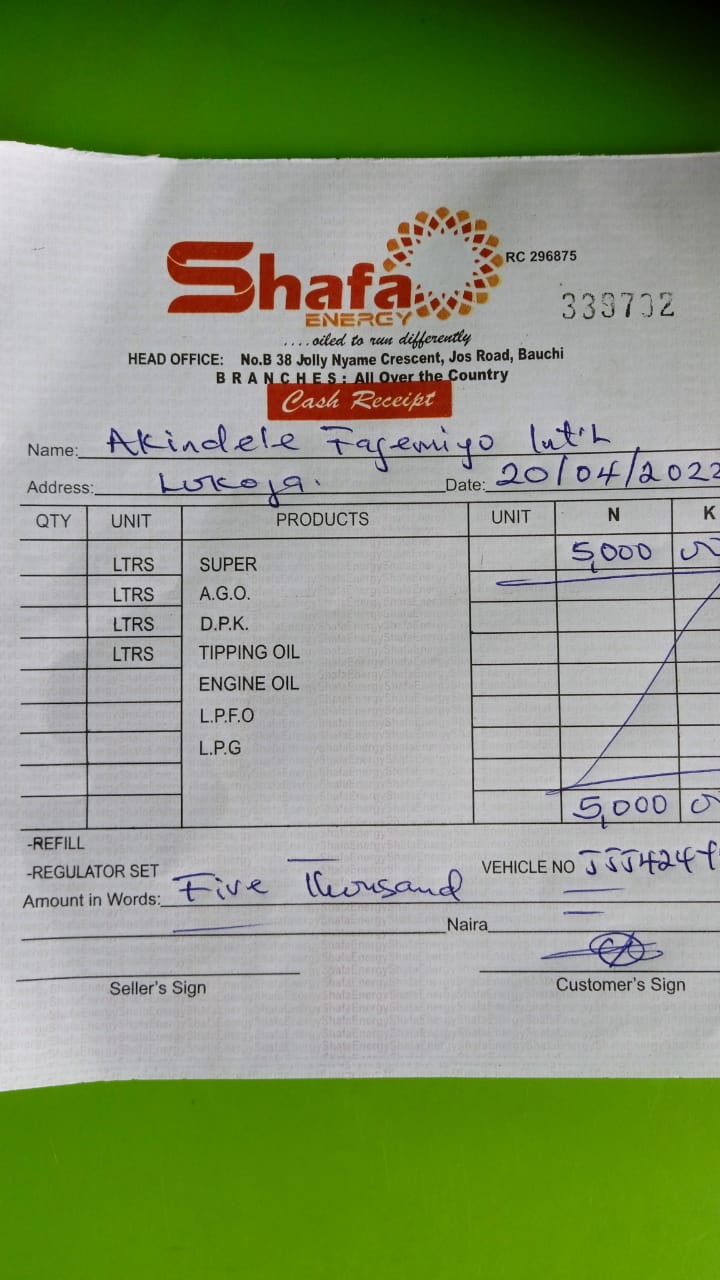 Shafa
ENERGY
RC 296875
339702
....oiled to run differently
HEAD OFFICE: No.B 38 Jolly Nyame Crescent, Jos Road, Bauchi
BRANCHES: All Over the Country
Cash Receipt
Name: Akindele Fagemiyo Int'L
Address: Lokoja. Date: 20/04/2022
QTY UNIT PRODUCTS UNIT N K
LTRS SUPER 5,000
LTRS A.G.O.
LTRS D.P.K.
LTRS TIPPING OIL
ENGINE OIL
L.P.F.O
L.P.G
5,000
-REFILL
-REGULATOR SET VEHICLE NO JJJ424
Amount in Words: Five Thousand
Naira
Seller's Sign Customer's Sign